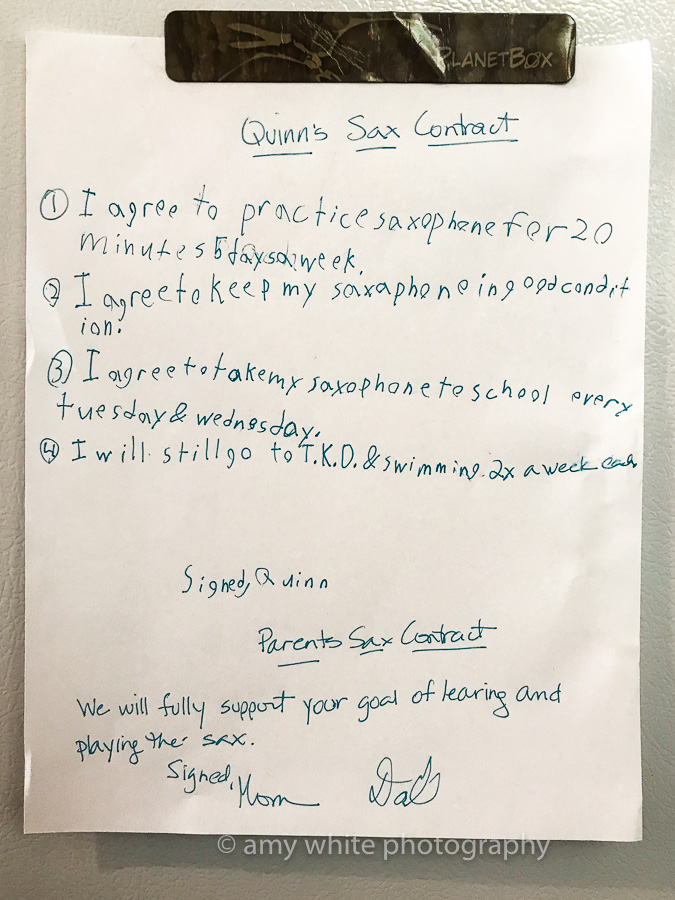 PLANETBOX
Quinn's Sax Contract
① I agree to practice saxophone for 20
minutes 5 days a week.
② I agree to keep my saxaphone in good condit
ion.
③ I agree to take my saxophone to school every
tuesday & wednesday.
④ I will still go to T.K.D. & swimming 2x a week each
Signed, Quinn
Parents Sax Contract
We will fully support your goal of learing and
playing the sax.
Signed, Mom Dad
© amy white photography